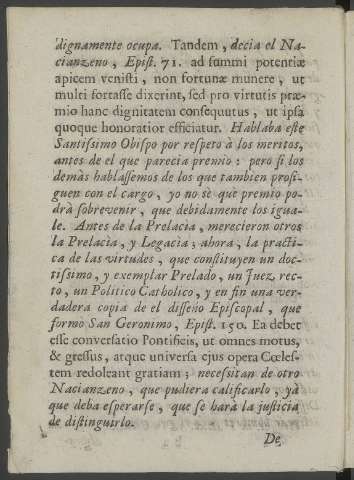 dignamente ocupa. Tandem, decia el Na-
cianzeno, Epist. 71. ad summi potentiæ
apicem venisti, non fortunæ munere, ut
multi fortasse dixerint, sed pro virtutis præ-
mio hanc dignitatem consequutus, ut ipsa
quoque honoratior efficiatur. Hablaba este
Santissimo Obispo por respeto à los meritos,
antes de el que parecia premio: pero si los
demàs hablassemos de los que tambien prosi-
guen con el cargo, yo no sè que premio po-
drà sobrevenir, que debidamente los igua-
le. Antes de la Prelacia, merecieron otros
la Prelacia, y Legacia; ahora, la practi-
ca de las virtudes, que constituyen un doc-
tissimo, y exemplar Prelado, un Juez rec-
to, un Politico Catholico, y en fin una ver-
dadera copia de el disseño Episcopal, que
formo San Geronimo, Epist. 150. Ea debet
esse conversatio Pontificis, ut omnes motus,
& gressus, atque universa ejus opera Cœles-
tem redoleant gratiam; necessitan de otro
Nacianzeno, que pudiera calificarlo, yà
que deba esperarse, que se harà la justicia
de distinguirlo.
De